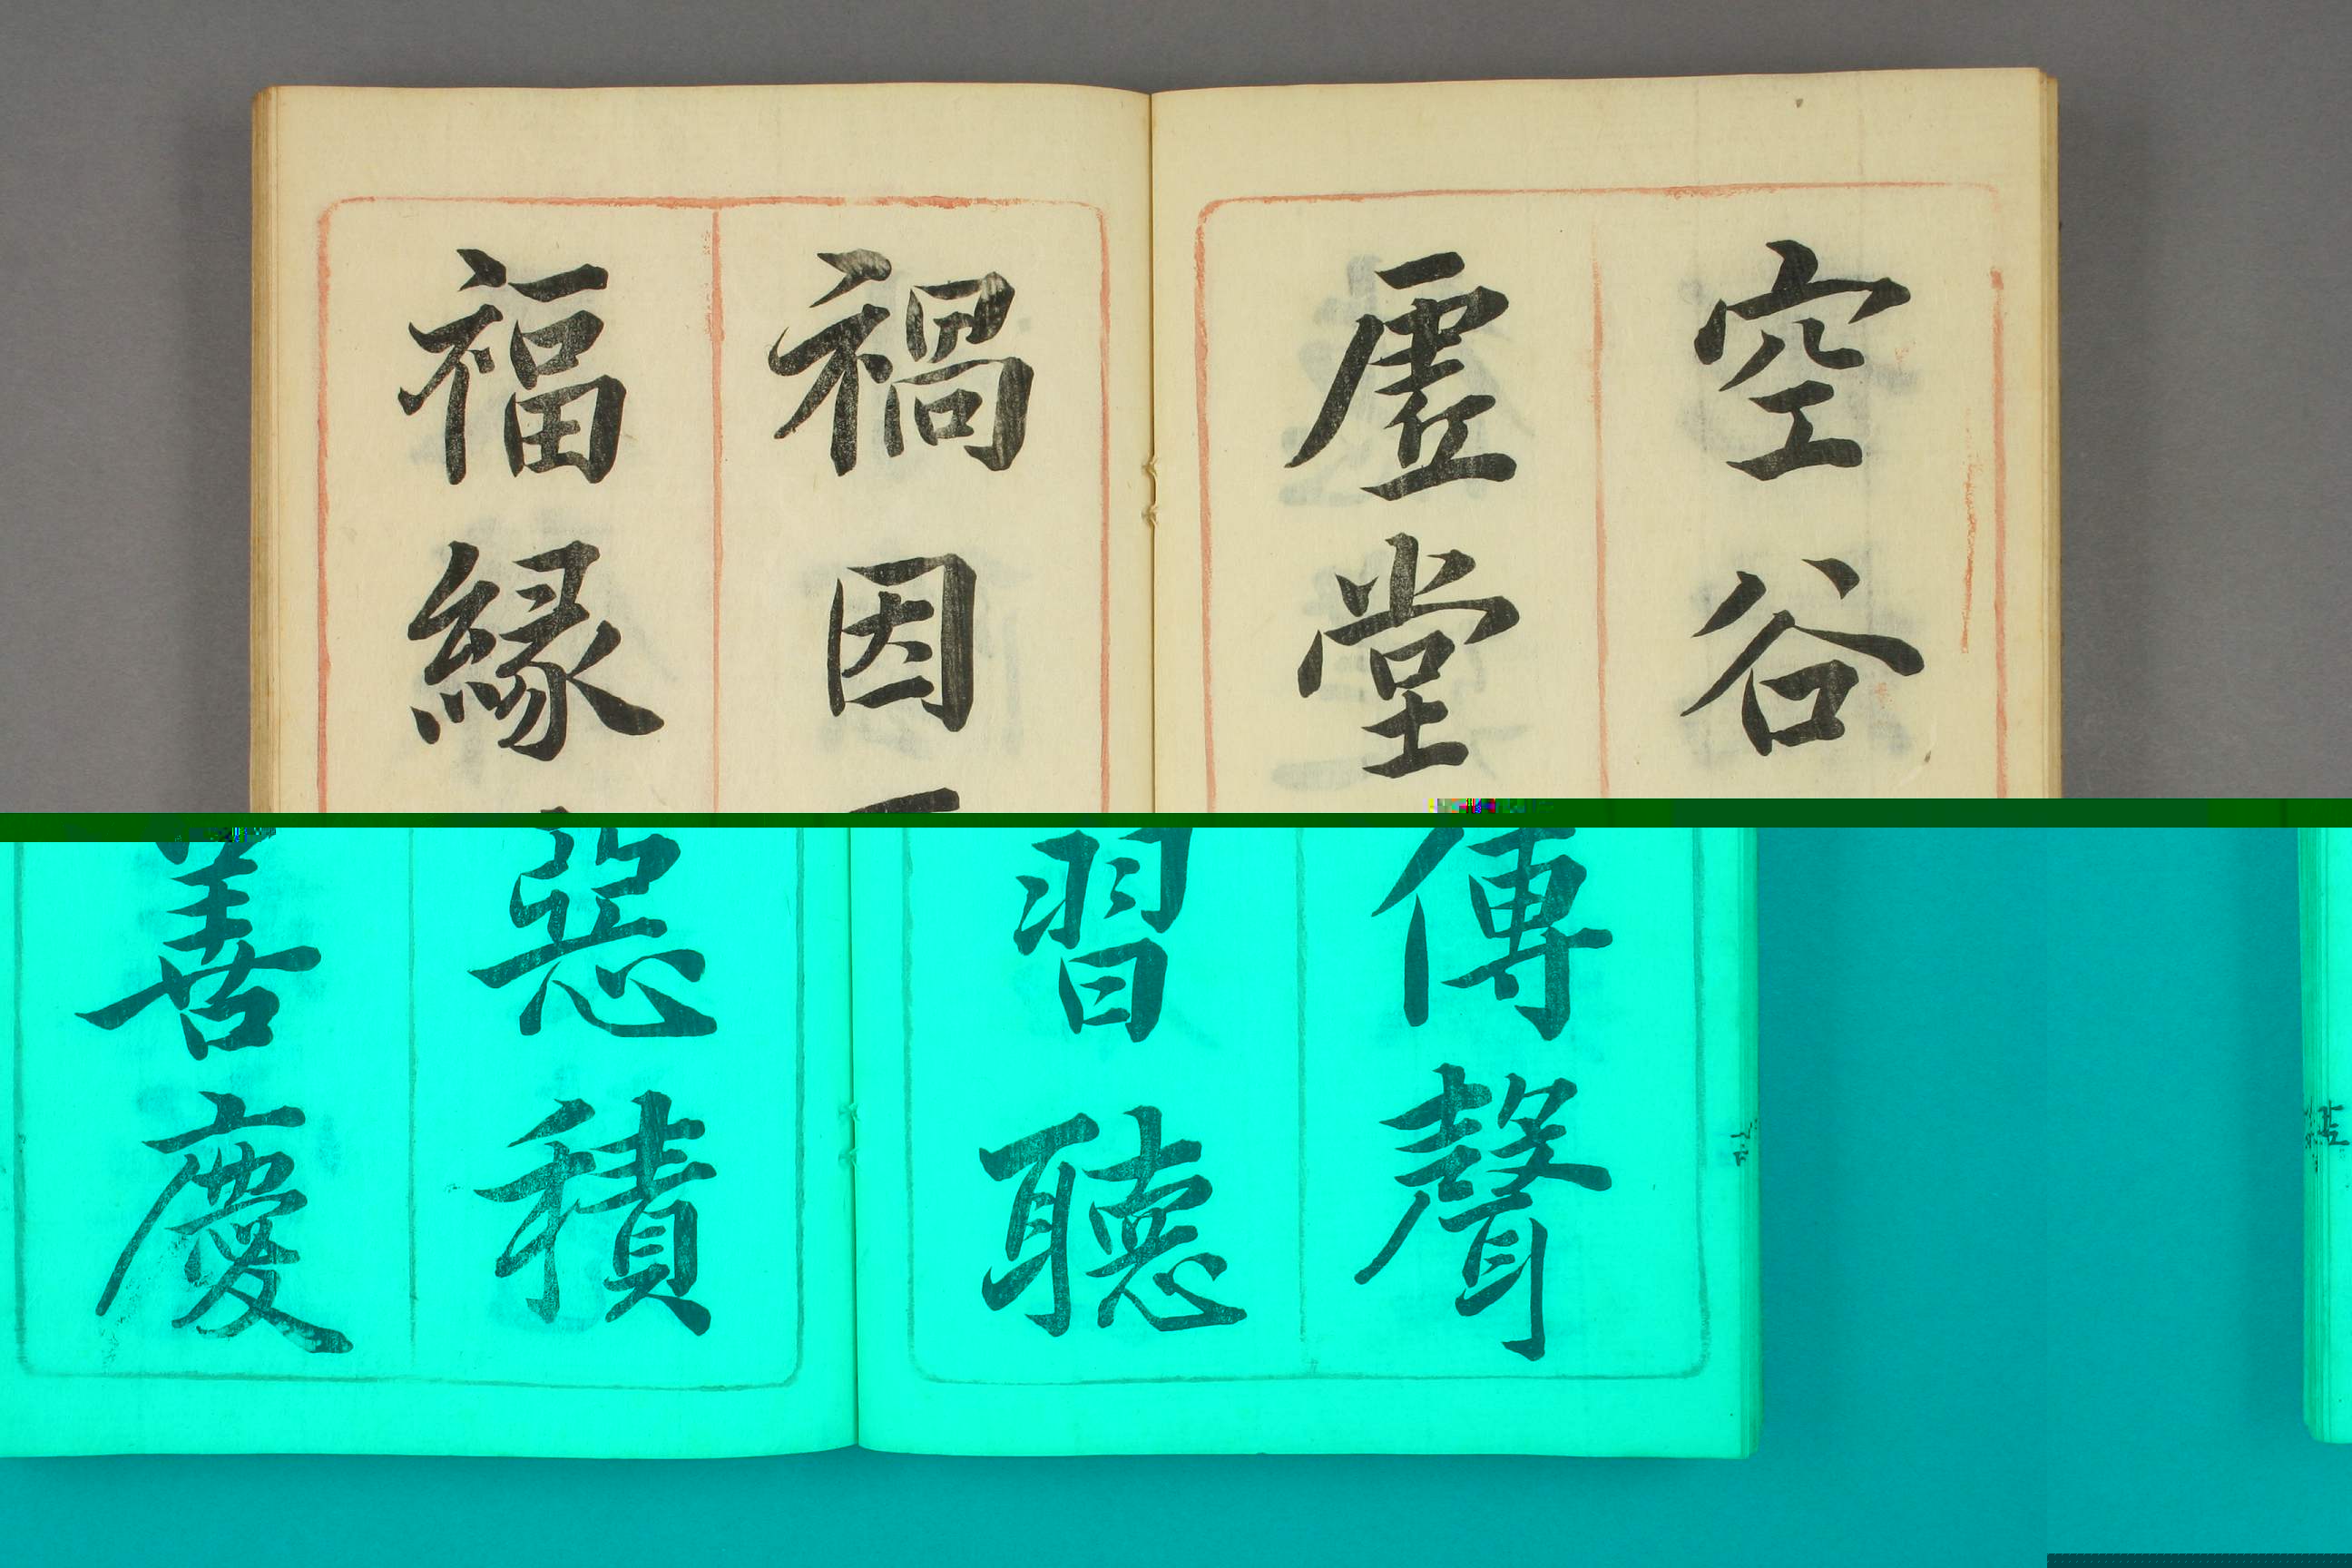 空谷傳聲
虚堂習聽
禍因惡積
福縁善慶